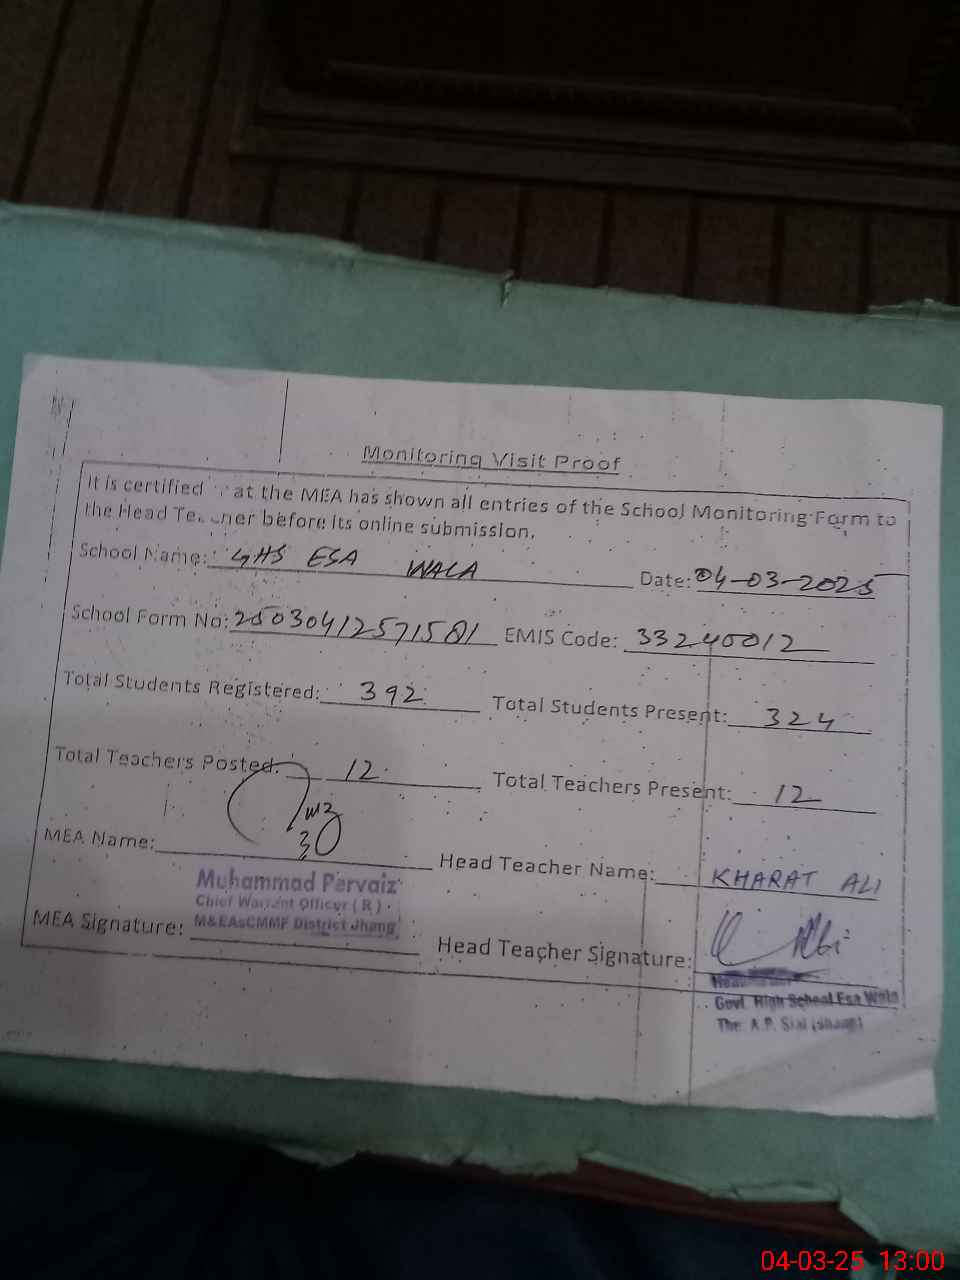 Monitoring Visit Proof
It is certified at the MEA has shown all entries of the School Monitoring Form to
the Head Teacher before its online submission.
School Name: GHS ESA WALA Date: 04-03-2025
School Form No: 25030412571501 EMIS Code: 33240012
Total Students Registered: 392 Total Students Present: 324
Total Teachers Posted: 12 Total Teachers Present: 12
MEA Name: Head Teacher Name: KHARAT ALI
Muhammad Pervaiz
Chief Warrant Officer ( R )
M&EAsCMMF District Jhang
MEA Signature: Head Teacher Signature:
Govt. High School Esa Wala
The: A.P. Sial (Jhang)
04-03-25 13:00